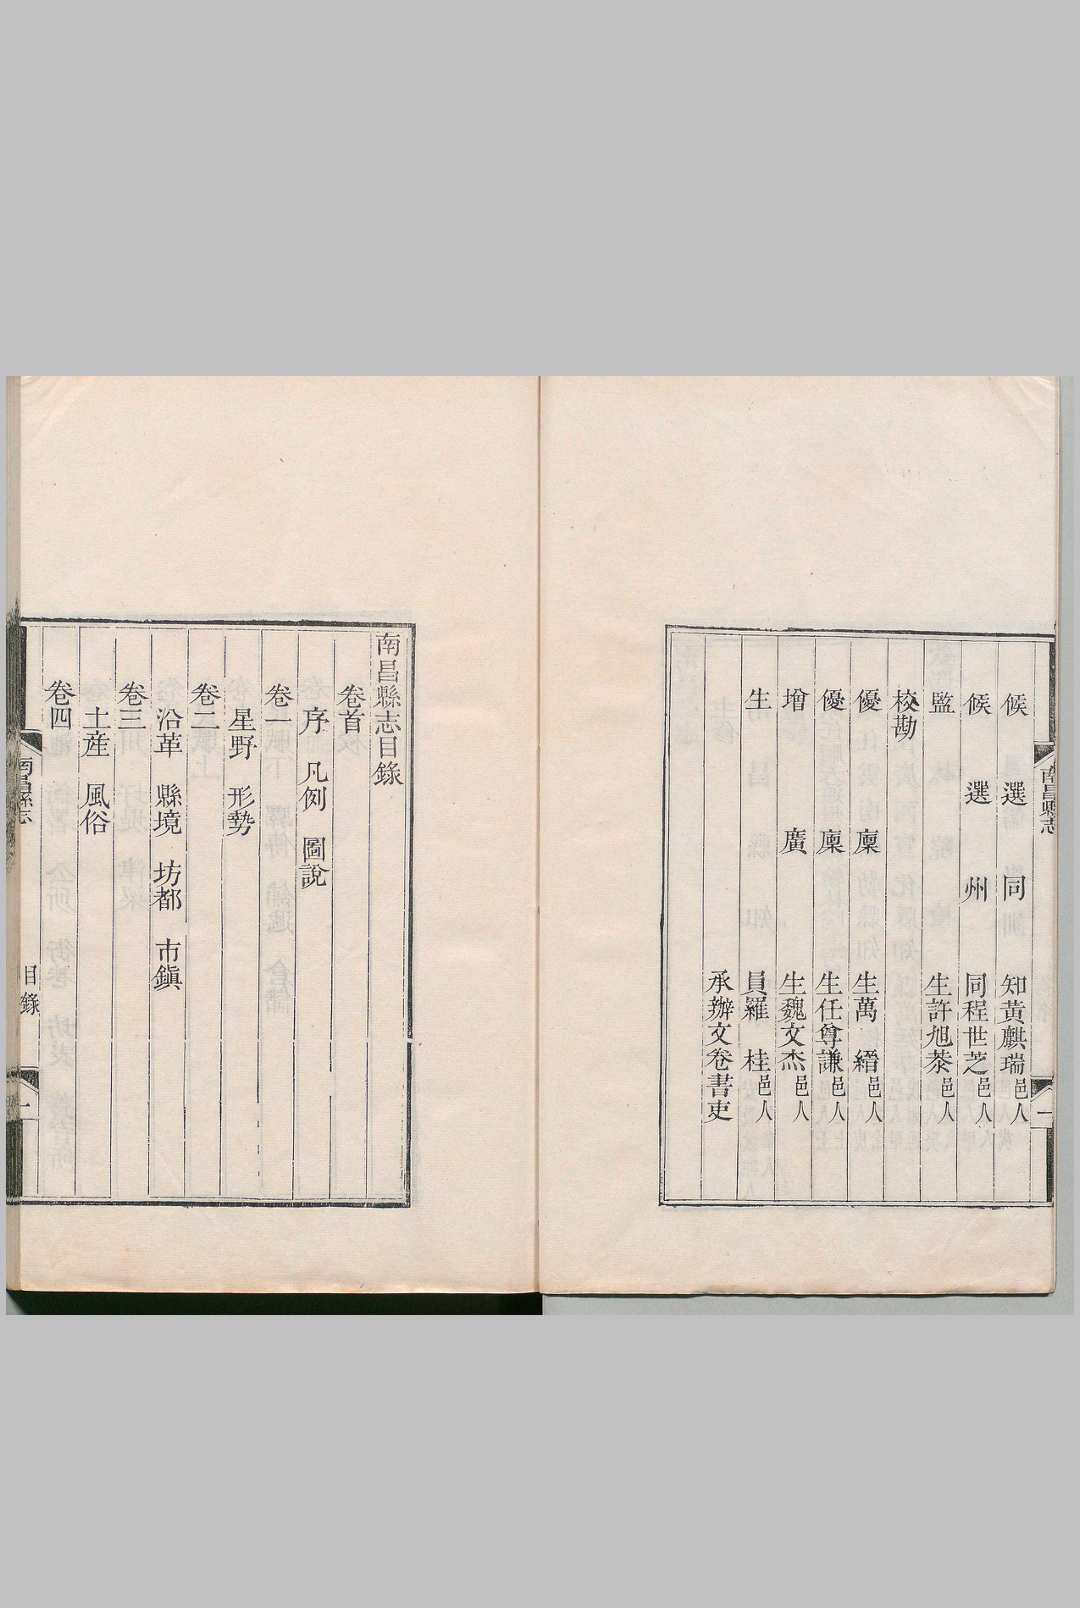 南昌縣志
一
候選同知黃麒瑞邑人
候選州同程世芝邑人
監生許旭蓁邑人
校勘
優廩生萬緡邑人
優廩生任尊謙邑人
增廣生魏文杰邑人
生員羅桂邑人
承辦文卷書吏
南昌縣志目錄
卷首
序 凡例 圖說
卷一
星野 形勢
卷二
沿革 縣境 坊都 市鎮
卷三
土産 風俗
卷四
南昌縣志
目錄
一